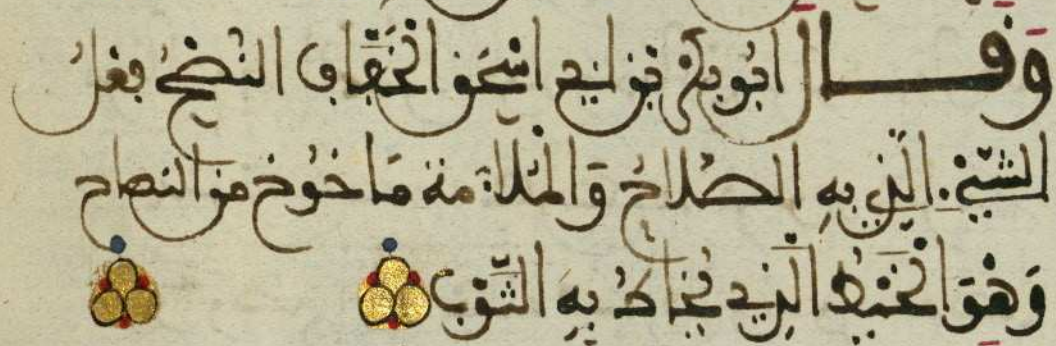 وَقال ابُو بكر بن ابي اسحق الخَفَّاف النُصْحُ فعلُ
الشيْء الّذي بهِ الصَلاحُ وَالمُلاءَمة مَاخُوذ من النصاح
وَهْوَ الخَيْطُ الّذِي يُخاطُ بِهِ الثَّوْب